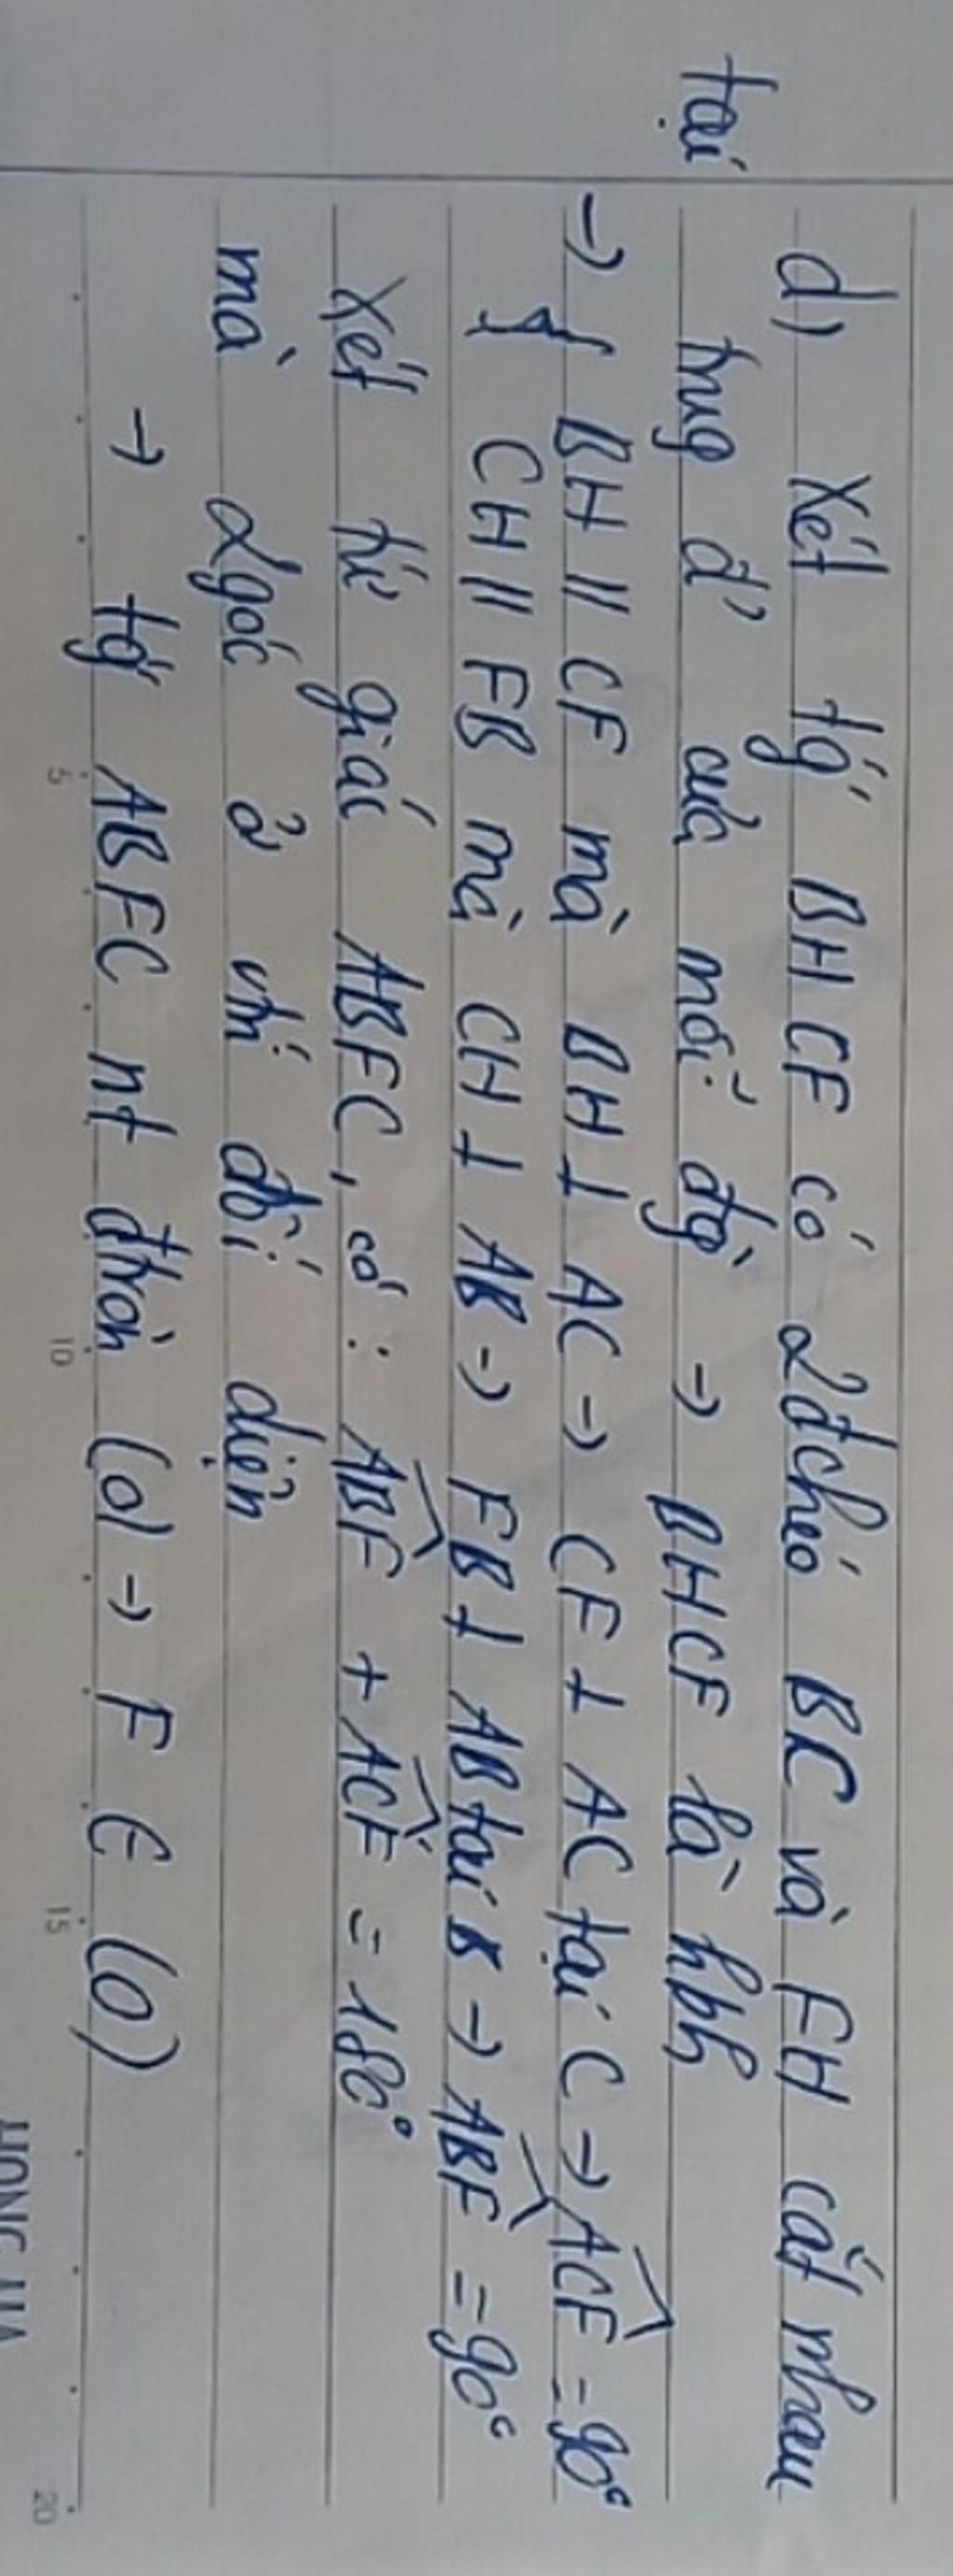 d) Xét tg' BHCF có 2 đchéo BC và FH cắt nhau
tại trug đ' của mỗi đg` → BHCF là hbh
→ { BH // CF mà BH ⊥ AC → CF ⊥ AC tại C → ACF = 90°
CH // FB mà CH ⊥ AB → FB ⊥ AB tại B → ABF = 90°
Xét tứ giác ABFC, có: ABF + ACF = 180°
mà 2 góc ở vtrí đối diện
→ tg' ABFC nt đtròn (O) → F ∈ (O)
5 10 15 20